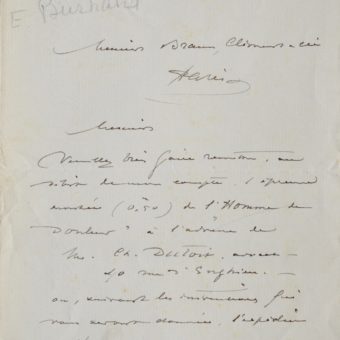 E Burkard
Messieurs Braun, Clément & Cie
Paris
Messieurs
Veuillez bien faire remettre, au
débit de mon compte, l'épreuve
(0,50) de l'Homme de
Douleur" à l'adresse de
M. Ch. Dutoit, avocat
40 rue d'
ou, suivant les instructions qui
vous seront données, l'expédier